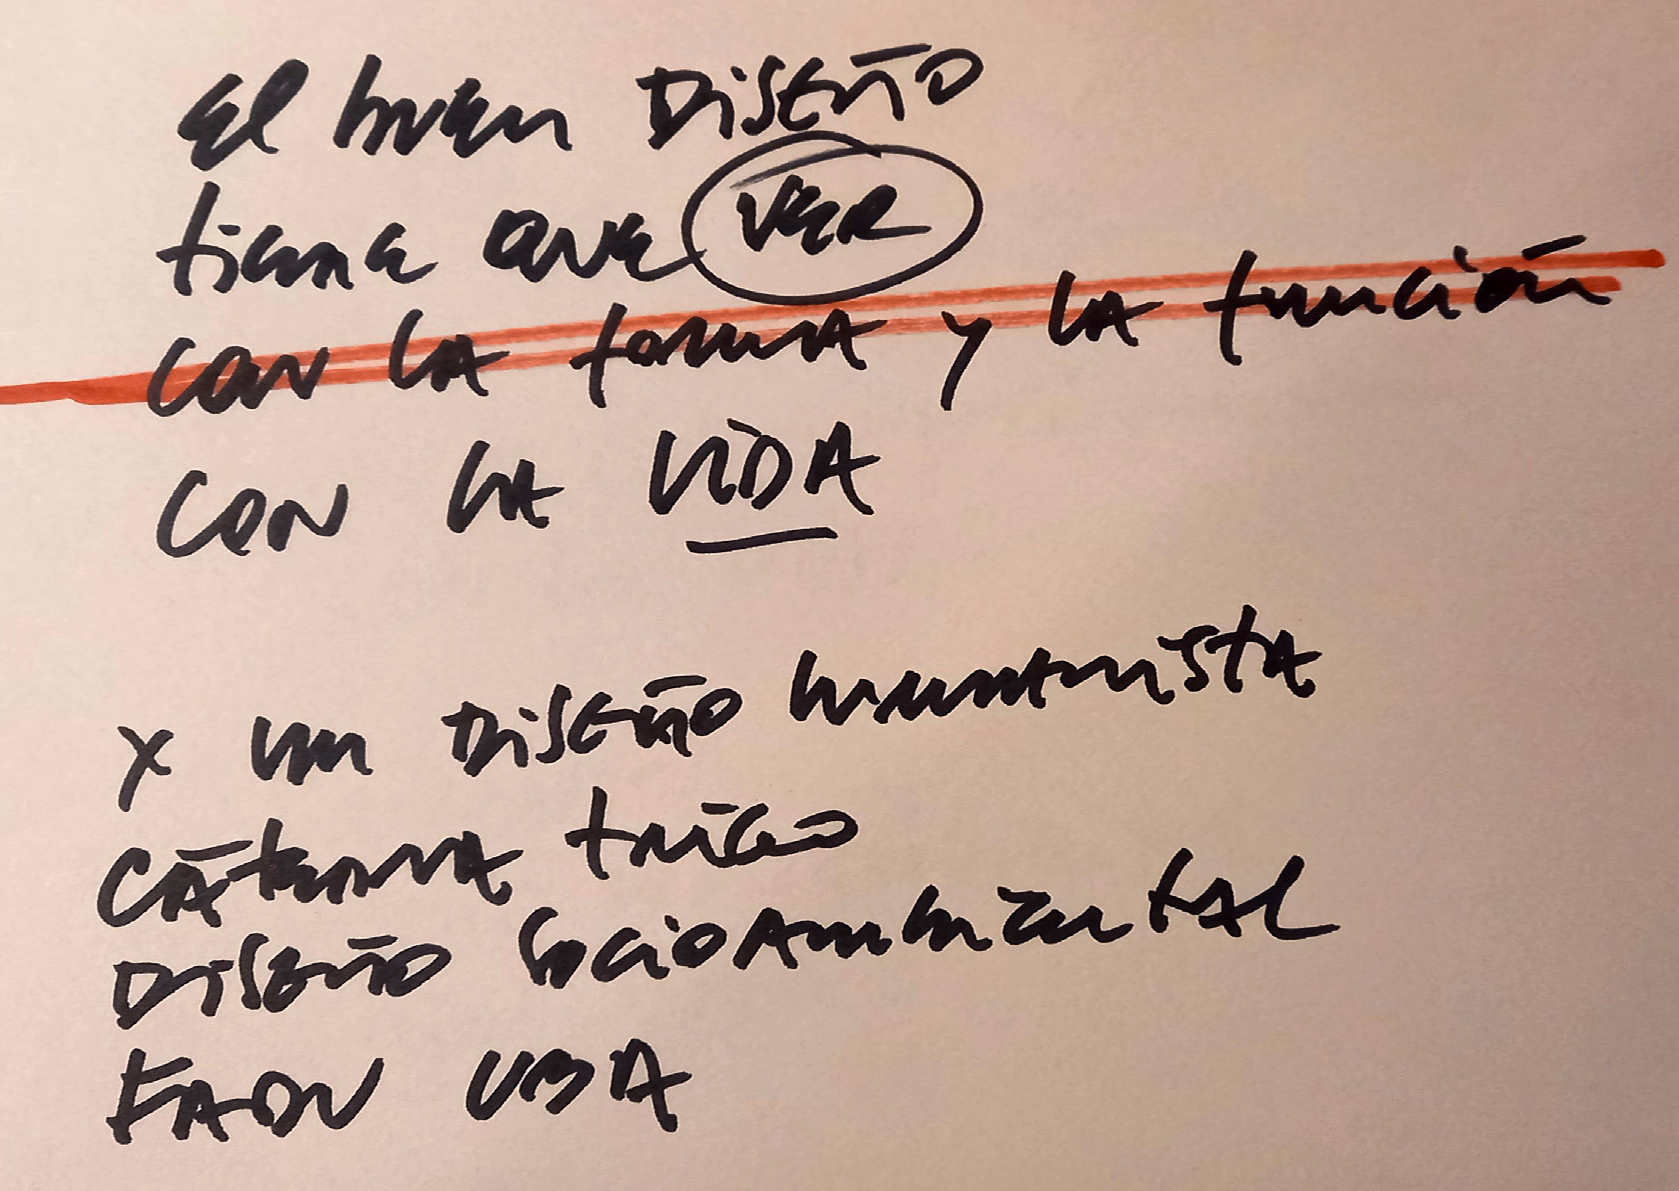 el buen DISEÑO
tiene que VER
con LA formA y LA función
con LA VIDA
x un DISEÑO humanistA
CÁtedrA trigo
DISEÑO SocioAmbientAL
FADU UBA